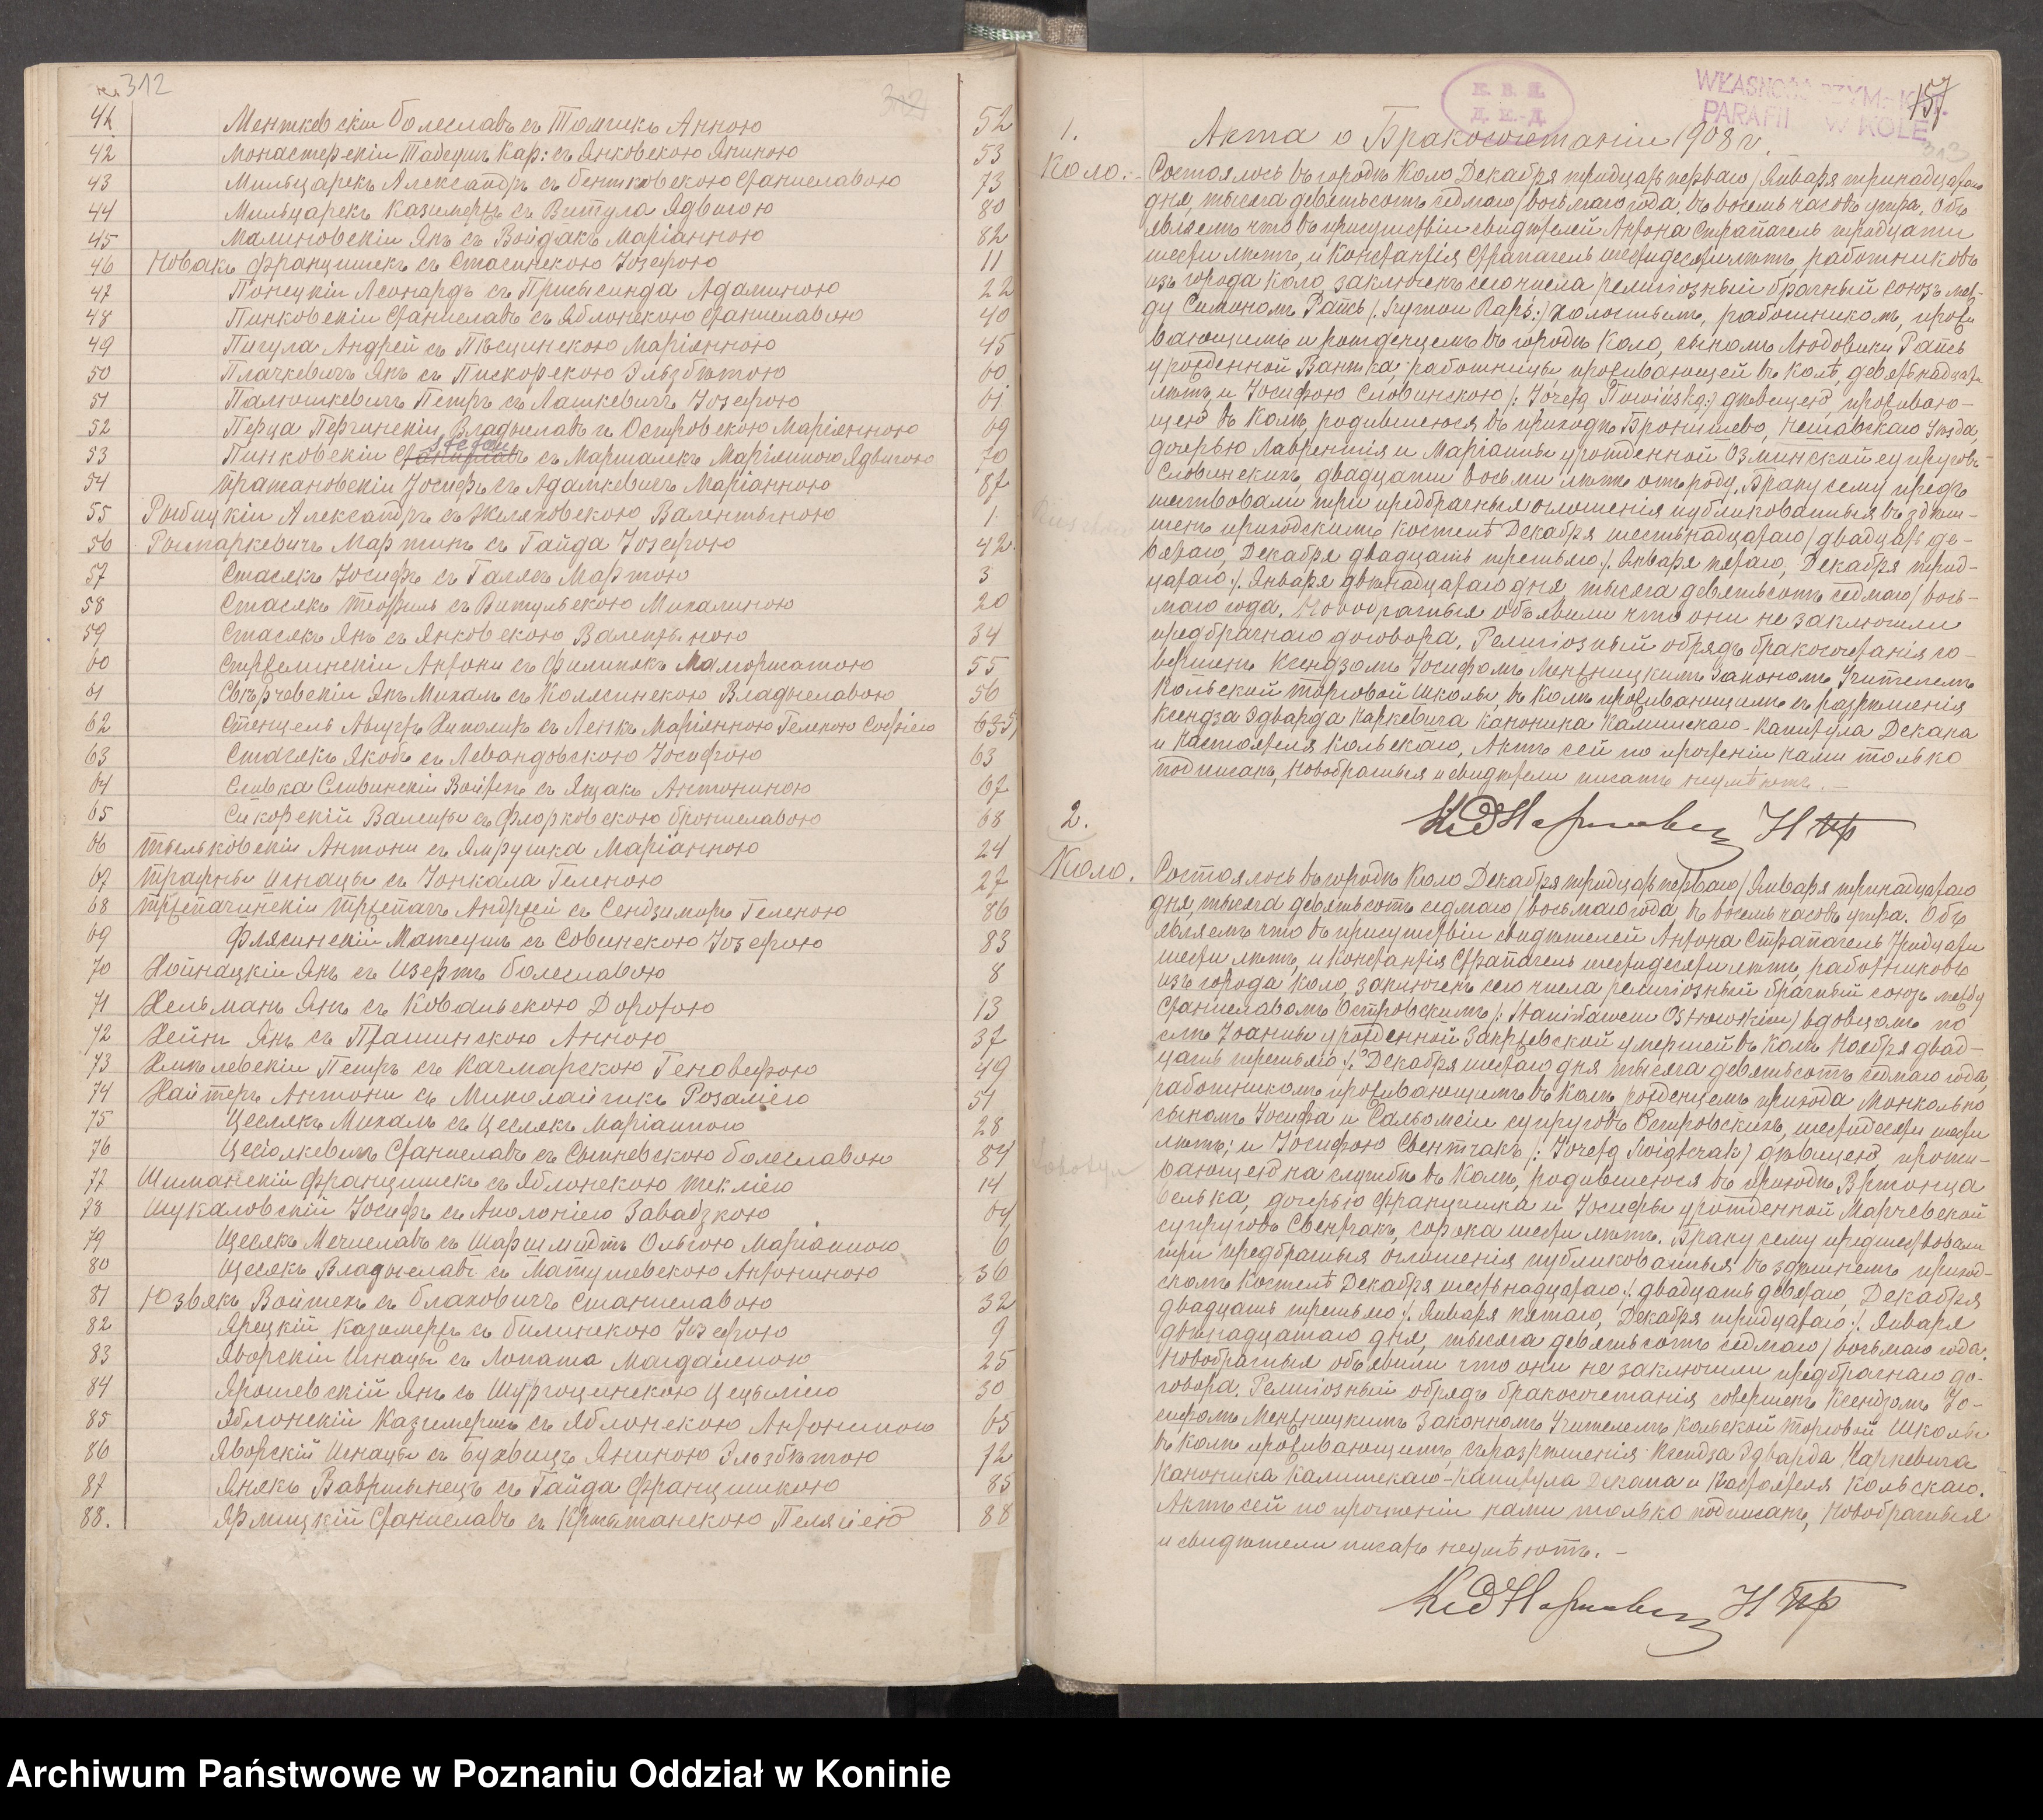 312
41 Ментковскіи Болеславъ съ Томчикъ Анною 52
42 Монастерскіи Тадеушъ Кар: съ Янковскою Яниною 53
43 Мильцарекъ Александръ съ Бентковскою Станиславою 73
44 Мильцарекъ Казимеръ съ Витула Ядвигою 80
45 Малиновскіи Янъ съ Войдакъ Маріанною 82
46 Новакъ Францишекъ съ Стасинскою Юзефою 11
47 Понецкіи Леонардъ съ Адаминою 22
48 Пинковскіи Станиславъ съ Яблонскою Станиславою 40
49 Пигула Андрей съ Пѣсцинскою Маріянною 45
50 Плачкевичъ Янъ съ Пискорскою Эльзбѣтою 60
51 Палюшкевичъ Петръ съ Лашкевичъ Юзефою 61
52 Перца Перчинскіи Владыславъ съ Островскою Маріянною 69
53 Пинковскіи Стефан съ Маршалекъ Маріянною Ядвигою 70
54 Пратановскіи Іосифъ съ Адамкевичъ Маріанною 87
55 Рыбицкіи Александръ съ Желяховскою Валентыною 1
56 Мартинъ съ Гайда Юзефою 42
57 Стасякъ Іосифъ съ Галясъ Мартою 3
58 Стасякъ Теофиль съ Витульскою Михалиною 20
59 Стасякъ Янъ съ Янковскою Валентыною 34
60 Стрвелинскіи Антони съ Филипякъ Малгоржатою 55
61 Янъ Михалъ съ Колясинскою Владыславою 56
62 Стенцель Авгуръ съ Ленкъ Маріянною Геленою Софіею
63 Стасякъ Якобъ съ Левандовскою Іосифою 63
64 Сливка Сливинскіи Войтех съ Ящакъ Антониною 67
65 Сикорскій Валенты съ Флорковскою Брониславою 68
66 Тыльковскіи Антони съ Ямрушка Маріанною 24
67 Трафны Игнацы съ Іонкала Геленою 27
68 Андржей съ Сендзимиръ Геленою 86
69 Флясинскіи Матеушъ съ Совинскою Юзефою 83
70 Хойнацкіи Янъ съ Изертъ Болеславою 8
71 Хельманъ Янъ съ Ковальскою Доротою 13
72 Хейнъ Янъ съ Прашинскою Анною 37
73 Хмѣлевскіи Петръ съ Качмарскою Геновефою 49
74 Хайтеръ Антони съ Миколайчикъ Розаліею 51
75 Цеслякъ Михалъ съ Цеслякъ Маріанною 28
76 Цесіолкевичъ Станиславъ съ Сытневскою Болеславою 84
77 Шиманскій Францишекъ съ Яблонскою Текліею 14
78 Шукаловскій Іосифъ съ Аполоніею Завадзкою 64
79 Щесякъ Мечиславъ съ Шаршмидтъ Ольгою Маріанною 6
80 Щесякъ Владыславъ съ Матушевскою Антониною 36
81 Юзвякъ Войтехъ съ Блаховичъ Станиславою 32
82 Ярецкій Казимеръ съ Билинскою Юзефою 9
83 Яворскіи Игнацы съ Лопата Магдаленою 25
84 Ярошевскій Янъ съ Шургоцинскою Цецыліею 30
85 Яблонскій Казимержъ съ Яблонскою Антониною 65
86 Яворскій Игнацы съ Яниною Эльзбѣтою 72
87 Янякъ Вавржынецъ съ Гайда Францишкою 85
88. Ярмицкій Станиславъ съ Пелагіею 88
WŁASNOŚĆ RZYM.-KAT.
PARAFII W KOLE
157
313
К. В. И.
Д. Е.-Д.
1.
Акта о Бракосочетаніи 1908 г.
Коло.
Состоялось въ городѣ Коло, Декабря тридцать перваго / Января тринадцатаго
дня, тысяча девятьсотъ седмаго / восьмаго года, въ восемь часовъ утра. Объ-
являемъ что въ присутствіи свидѣтелей Антона Страпагель тридцати
шести лѣтъ, и Константія Страпагель шестидесяти лѣтъ, работниковъ
изъ города Коло, заключенъ сего числа религіозный брачный союзъ меж-
ду Симономъ Рапсь /: Szymon Rapś :/ холостымъ, работникомъ, прожи-
вающимъ и рожденцемъ въ городѣ Коло, сыномъ Людовики Рапсь
урожденной Вантка, работницы, проживающей въ Колѣ, девятнадцати
лѣтъ, и Іосифою Словинскою /: Józefą Słowińską :/ дѣвицею, проживаю-
щею въ Колѣ, родившеюся въ приходѣ Бронишево, Нешавскаго Уѣзда,
дочерью Лаврентія и Маріанны урожденной Озминской супруговъ
Словинскихъ, двадцати восьми лѣтъ отъ роду. Браку сему пред-
шествовали три предбрачныя оглашенія публикованныя въ здѣш-
немъ приходскимъ костелѣ Декабря шестьнадцатаго / двадцать де-
вятаго, Декабря двадцать третьяго /. Января пятаго, Декабря трид-
цатаго /. Января двѣнадцатаго дня, тысяча девятьсотъ седмаго / вось-
маго года. Новобрачныя объявили что они не заключили
предбрачнаго договора. Религіозный обрядъ бракосочетанія со-
вершенъ Ксендзомъ Іосифомъ Менжницкимъ Закономъ Учителемъ
Кольской Торговой Школы, въ Колѣ проживающимъ съ разрѣшенія
Ксендза Эдварда Наркевича Каноника Калишскаго-Капитула Декана
и Настоятеля Кольскаго. Актъ сей по прочтеніи нами только
подписанъ, новобрачныя и свидѣтели писать неумѣютъ. —
2.
Коло.
Состоялось въ городѣ Коло Декабря тридцать перваго / Января тринадцатаго
дня, тысяча девятьсотъ седмаго / восьмаго года въ восемь часовъ утра. Объ-
являемъ что въ присутствіи свидѣтелей Антона Страпагель тридцати
шести лѣтъ, и Константія Страпагель шестидесяти лѣтъ, работниковъ
изъ города Коло, заключенъ сего числа религіозный брачный союзъ между
Станиславомъ Островскимъ /: Stanisławem Ostrowskim :/ вдовцомъ по-
слѣ Іоанны урожденной Закржевской умершей въ Колѣ Ноября двад-
цать третьяго /. Декабря шестаго дня тысяча девятьсотъ седмаго года,
работникомъ проживающимъ въ Колѣ, рожденцемъ прихода Монкольно
сыномъ Іосифа и Сальомеи супруговъ Островскихъ, шестидесяти шести
лѣтъ; и Іосифою Свентчакъ /: Józefą Świątczak :/ дѣвицею, прожи-
вающею на службѣ въ Колѣ, родившеюся въ приходѣ Вржонца
Велька, дочерью Францишка и Іосифы урожденной Марчевской
супруговъ Свентчакъ, сорока шести лѣтъ. Браку сему предшествовали
три предбрачныя оглашенія публикованныя въ здѣшнемъ приход-
скомъ костелѣ Декабря шестьнадцатаго /. двадцать девятаго, Декабря
двадцать третьяго /. Января пятаго, Декабря тридцатаго /. Января
двѣнадцатаго дня, тысяча девятьсотъ седмаго / восьмаго года.
Новобрачныя объявили что они не заключили предбрачнаго до-
говора. Религіозный обрядъ бракосочетанія совершенъ Ксендзомъ Іо-
сифомъ Менжницкимъ Закономъ Учителемъ Кольской Торговой Школы
въ Колѣ проживающимъ, съ разрѣшенія Ксендза Эдварда Наркевича
Каноника Калишскаго-Капитула Декана и Настоятеля Кольскаго.
Актъ сей по прочтеніи нами только подписанъ, Новобрачныя
и свидѣтели писать неумѣютъ. —
Archiwum Państwowe w Poznaniu Oddział w Koninie